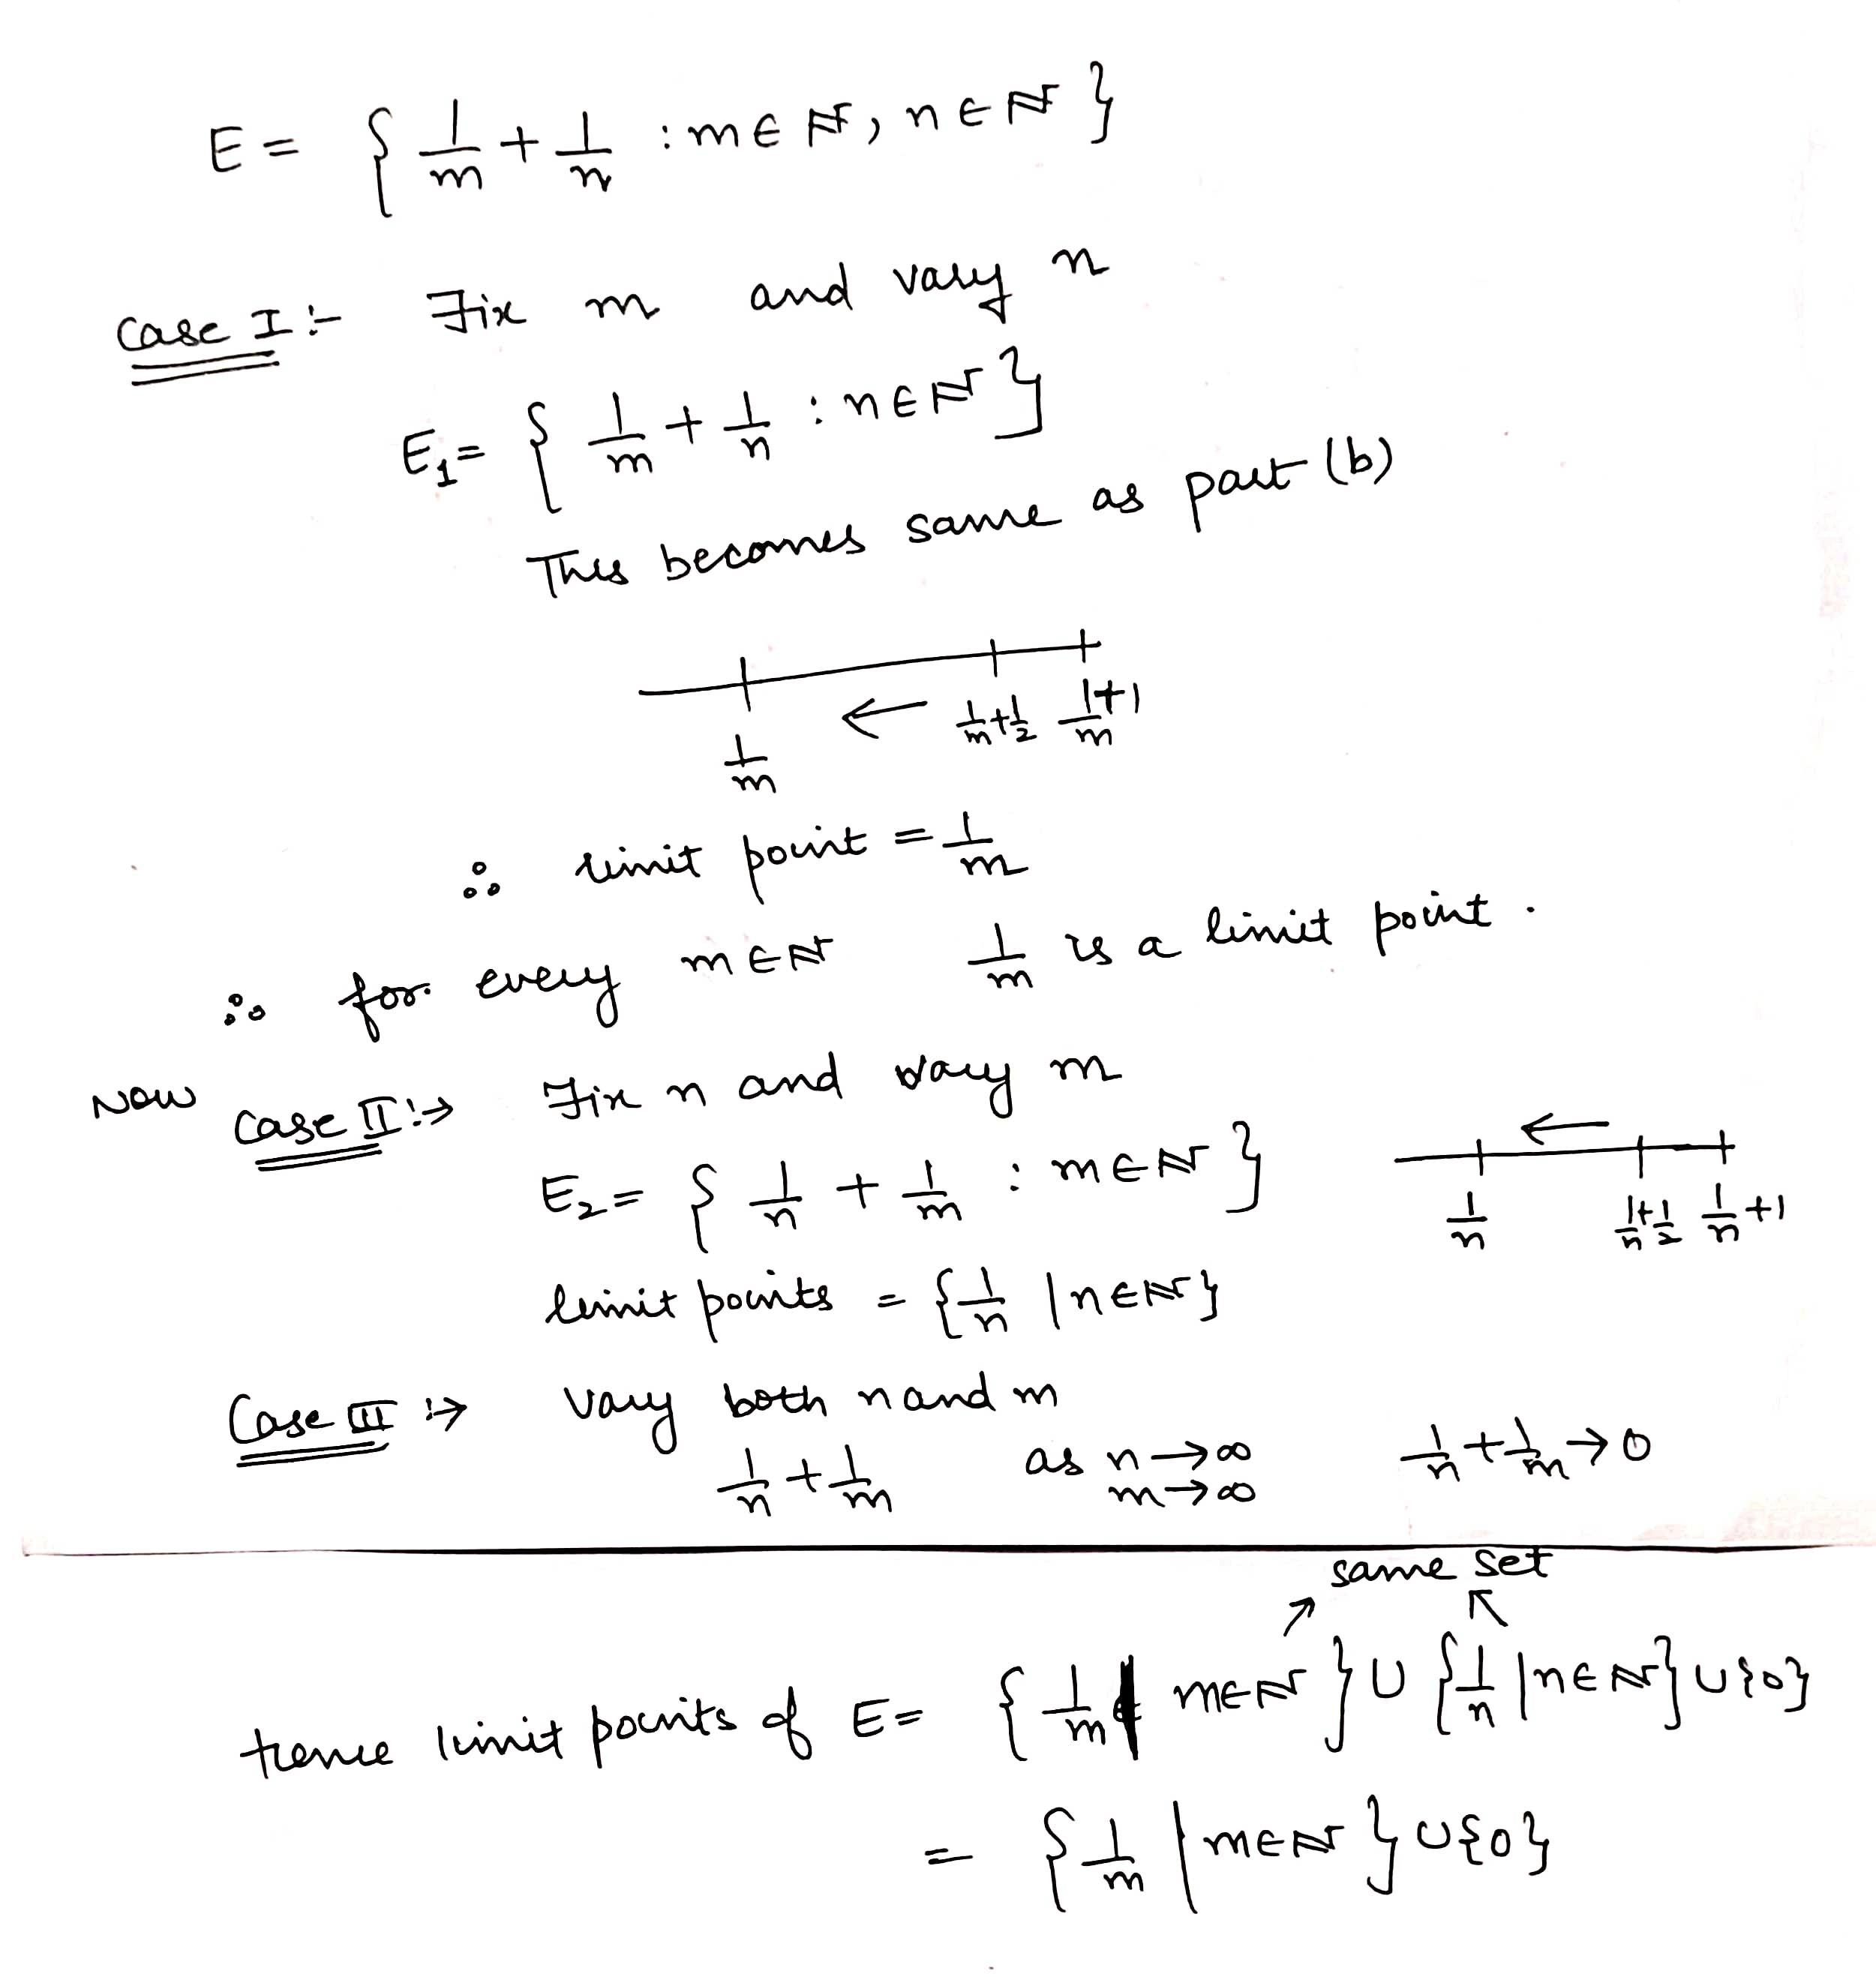 E = { 1/m + 1/n : m ∈ ℕ, n ∈ ℕ }
Case I :- Fix m and vary n
E₁ = { 1/m + 1/n : n ∈ ℕ }
This becomes same as part (b)
1/m ← 1/m + 1/2 1/m + 1
∴ limit point = 1/m
∴ for every m ∈ ℕ 1/m is a limit point.
Now Case II :→ Fix n and vary m
E₂ = { 1/n + 1/m : m ∈ ℕ }
← 1/n 1/n + 1/2 1/n + 1
limit points = { 1/n | n ∈ ℕ }
Case III :→ vary both n and m
1/n + 1/m as n → ∞ m → ∞ 1/n + 1/m → 0
same set
Hence limit points of E = { 1/m | m ∈ ℕ } ∪ { 1/n | n ∈ ℕ } ∪ {0}
= { 1/m | m ∈ ℕ } ∪ {0}